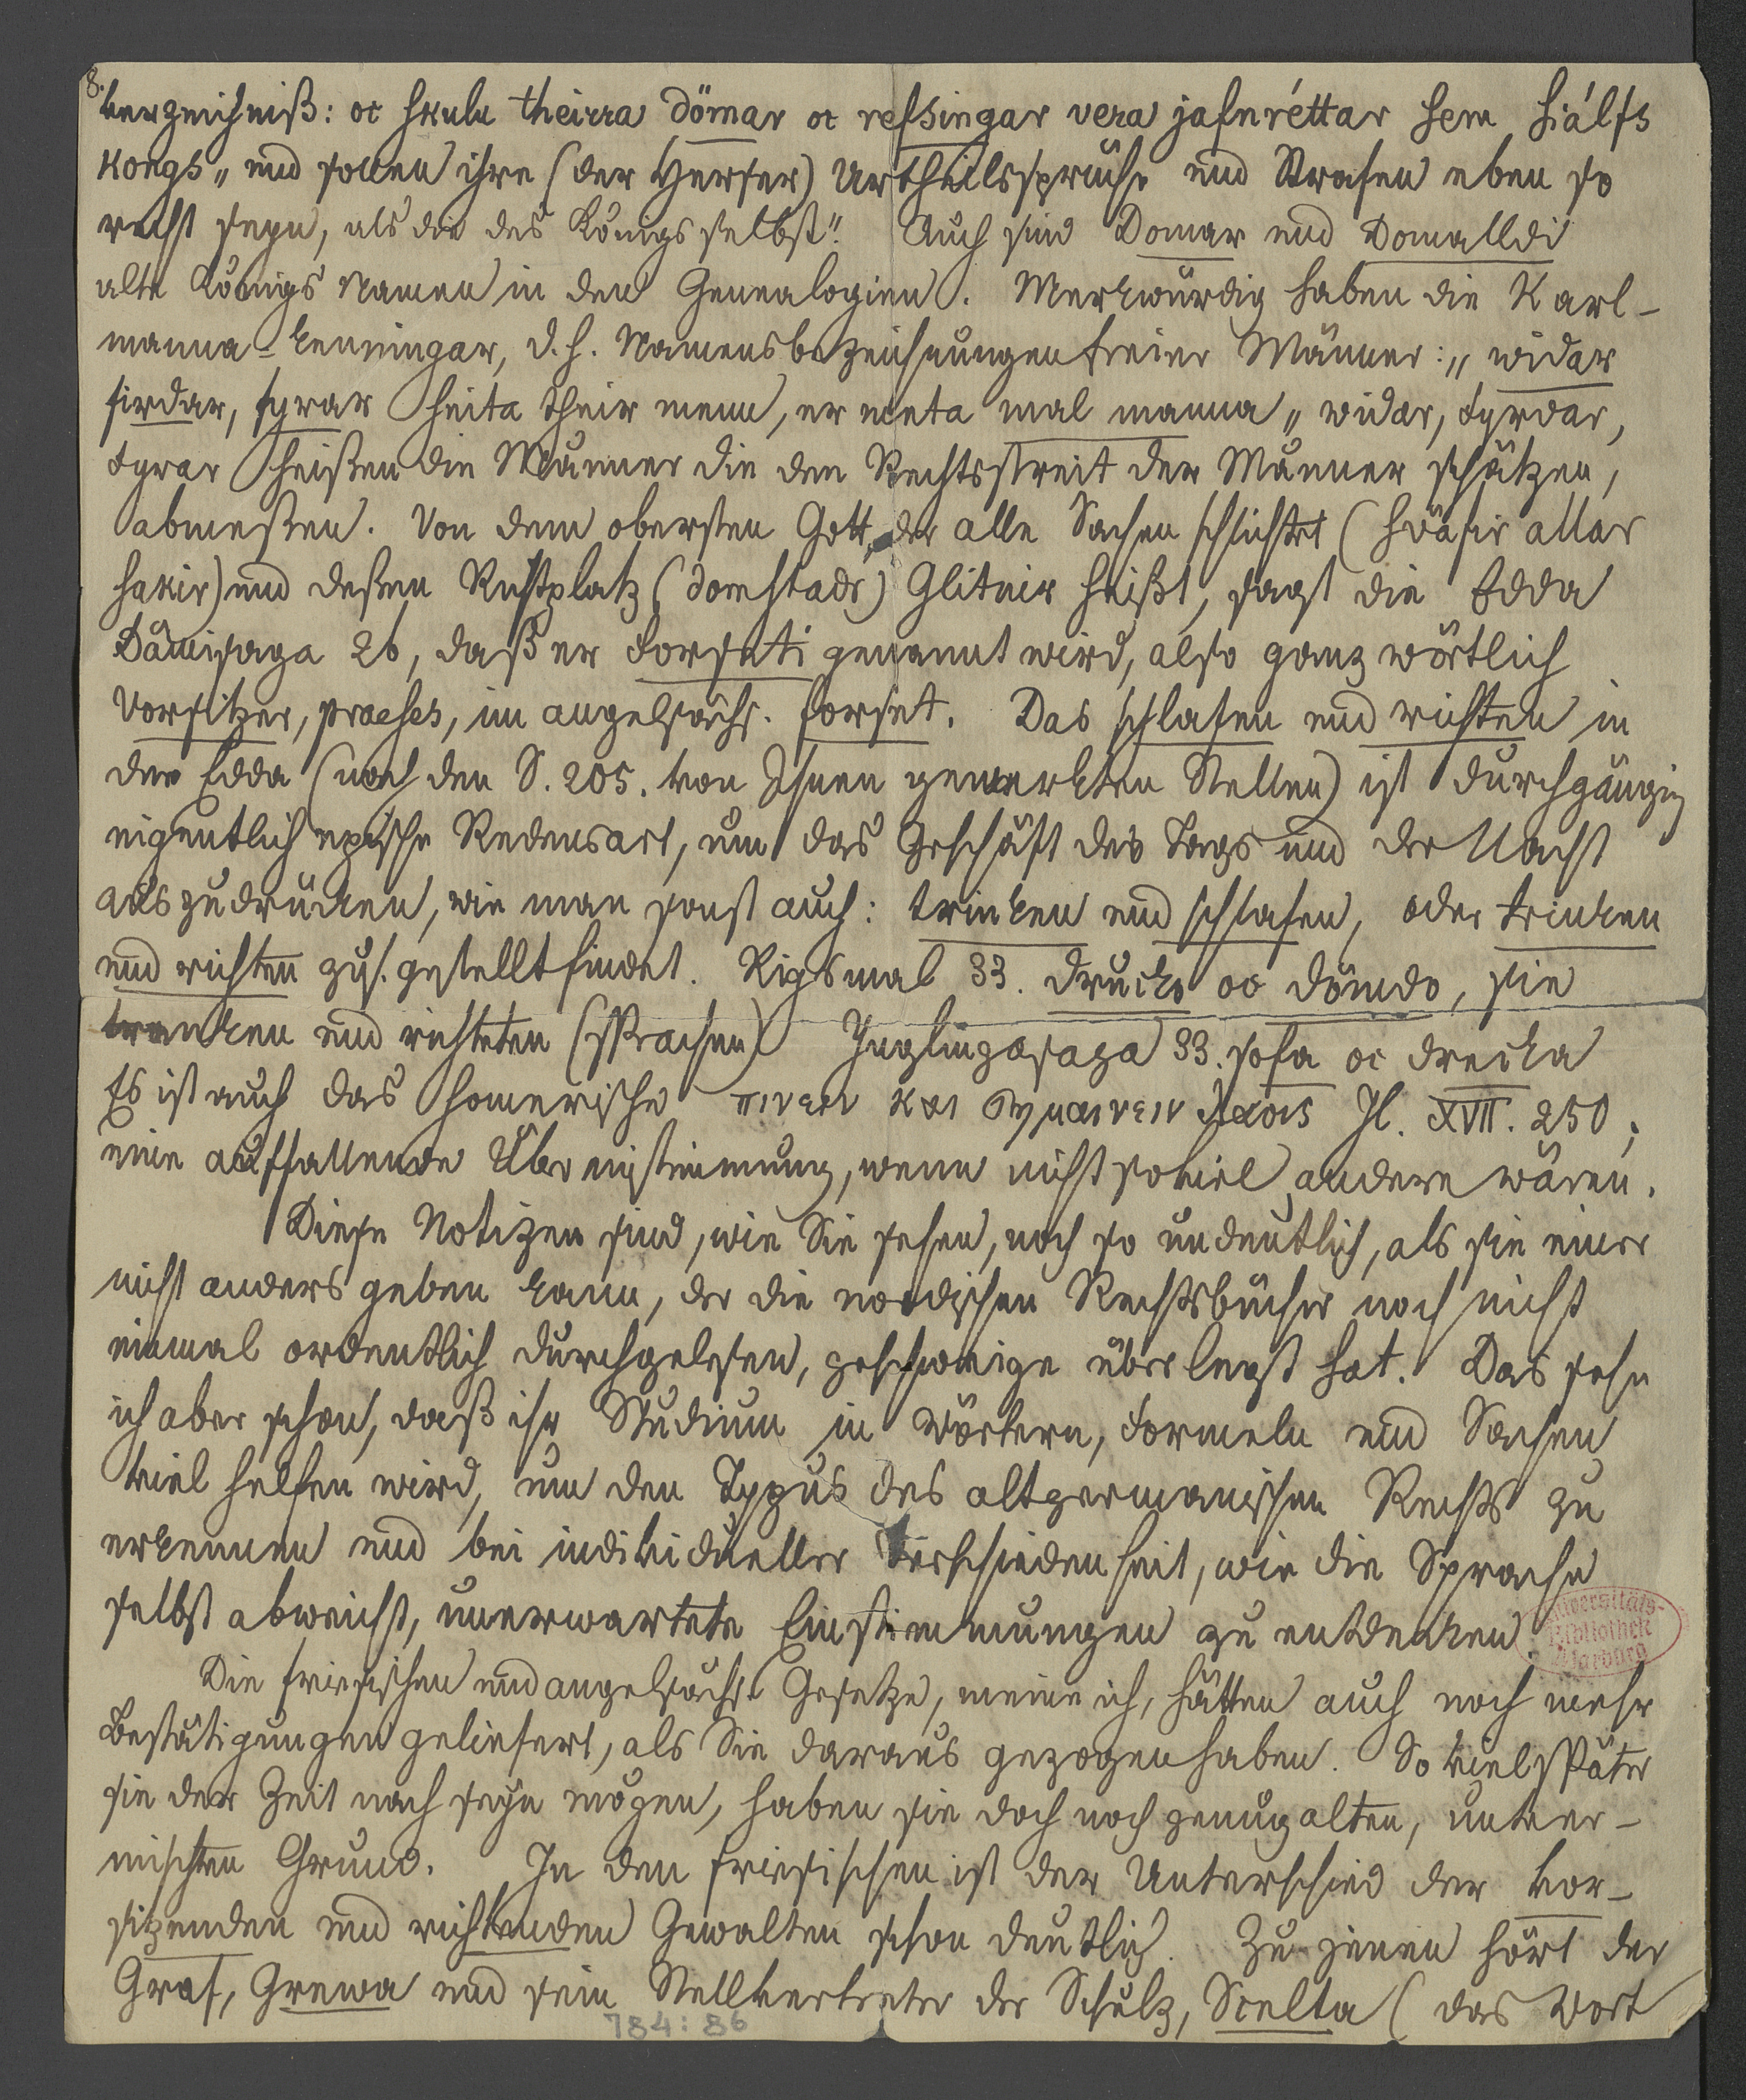 8.
verzeichniß: oc skulu theirra dömar oc refsingar vera jafnréttar sem siálfs
kongs „ und sollen ihre (der Herser) Urtheilssprüche und Strafen eben so
recht seyn, als die des Königs selbst“. Auch sind Domar und Domalldi
alte Königs Namen in den Genealogien. Merkwürdig haben die Karl-
manna-kenningar, d. h. Namensbezeichnungen freier Männer: „ widar
firdar, fyrar heita their menn, er meta mal manna „ widar, fyrdar,
fyrar heißen die Männer die den Rechtsstreit der Männer schätzen,
abmeßen. Von dem obersten Gott, der alle Sachen schlichtet (sväfir allar
sakir) und deßen Richtplatz (domstadr) Glitnir heißt, sagt die Edda
Dämisaga 26, daß er Forseti genannt wird, also ganz wörtlich
Vorsitzer, praeses, im angelsächs. forset. Das schlafen und richten in
der Edda (nach den S. 205. von Ihnen gemerkten Stellen) ist durchgängig
eigentlich epische Redensart, um das Geschäft des Tags und der Nacht
auszudrücken, wie man sonst auch: trinken und schlafen, oder trinken
und richten zus. gestellt findet. Rigsmal 33. drucko oc dömdo, sie
tranken und richteten (sprachen) Ynglingasaga 33. sofa oc drecka
Es ist auch das homerische πινειν και σημαινειν λαοις Il. XVII. 250;
eine auffallende Übereinstimmung, wenn nicht soviel andere wären.
Diese Notizen sind, wie Sie sehen, noch so undeutlich, als sie einer
nicht anders geben kann, der die nordischen Rechtsbücher noch nicht
einmal ordentlich durchgelesen, geschweige überlegt hat. Das sehe
ich aber schon, daß ihr Studium in Wörtern, Formeln und Sachen
viel helfen wird, um den Typus des altgermanischen Rechts zu
erkennen und bei individueller Verschiedenheit, wie die Sprache
selbst abweicht, unerwartete Einstimmungen zu entdecken.
Universitäts-
Bibliothek
Marburg
Die friesischen und angelsächs. Gesetze, meine ich, hätten auch noch mehr
Bestätigungen geliefert, als Sie daraus gezogen haben. So viel später
sie der Zeit nach seyn mögen, haben sie doch noch genug alten, unver-
mischten Grund. In den friesischen ist der Unterschied der vor-
sitzenden und richtenden Gewalten schon deutlich. Zu jenen hört der
Graf, Grewa und sein Stellvertreter der Schulz, Scelta (das Wort
784:86